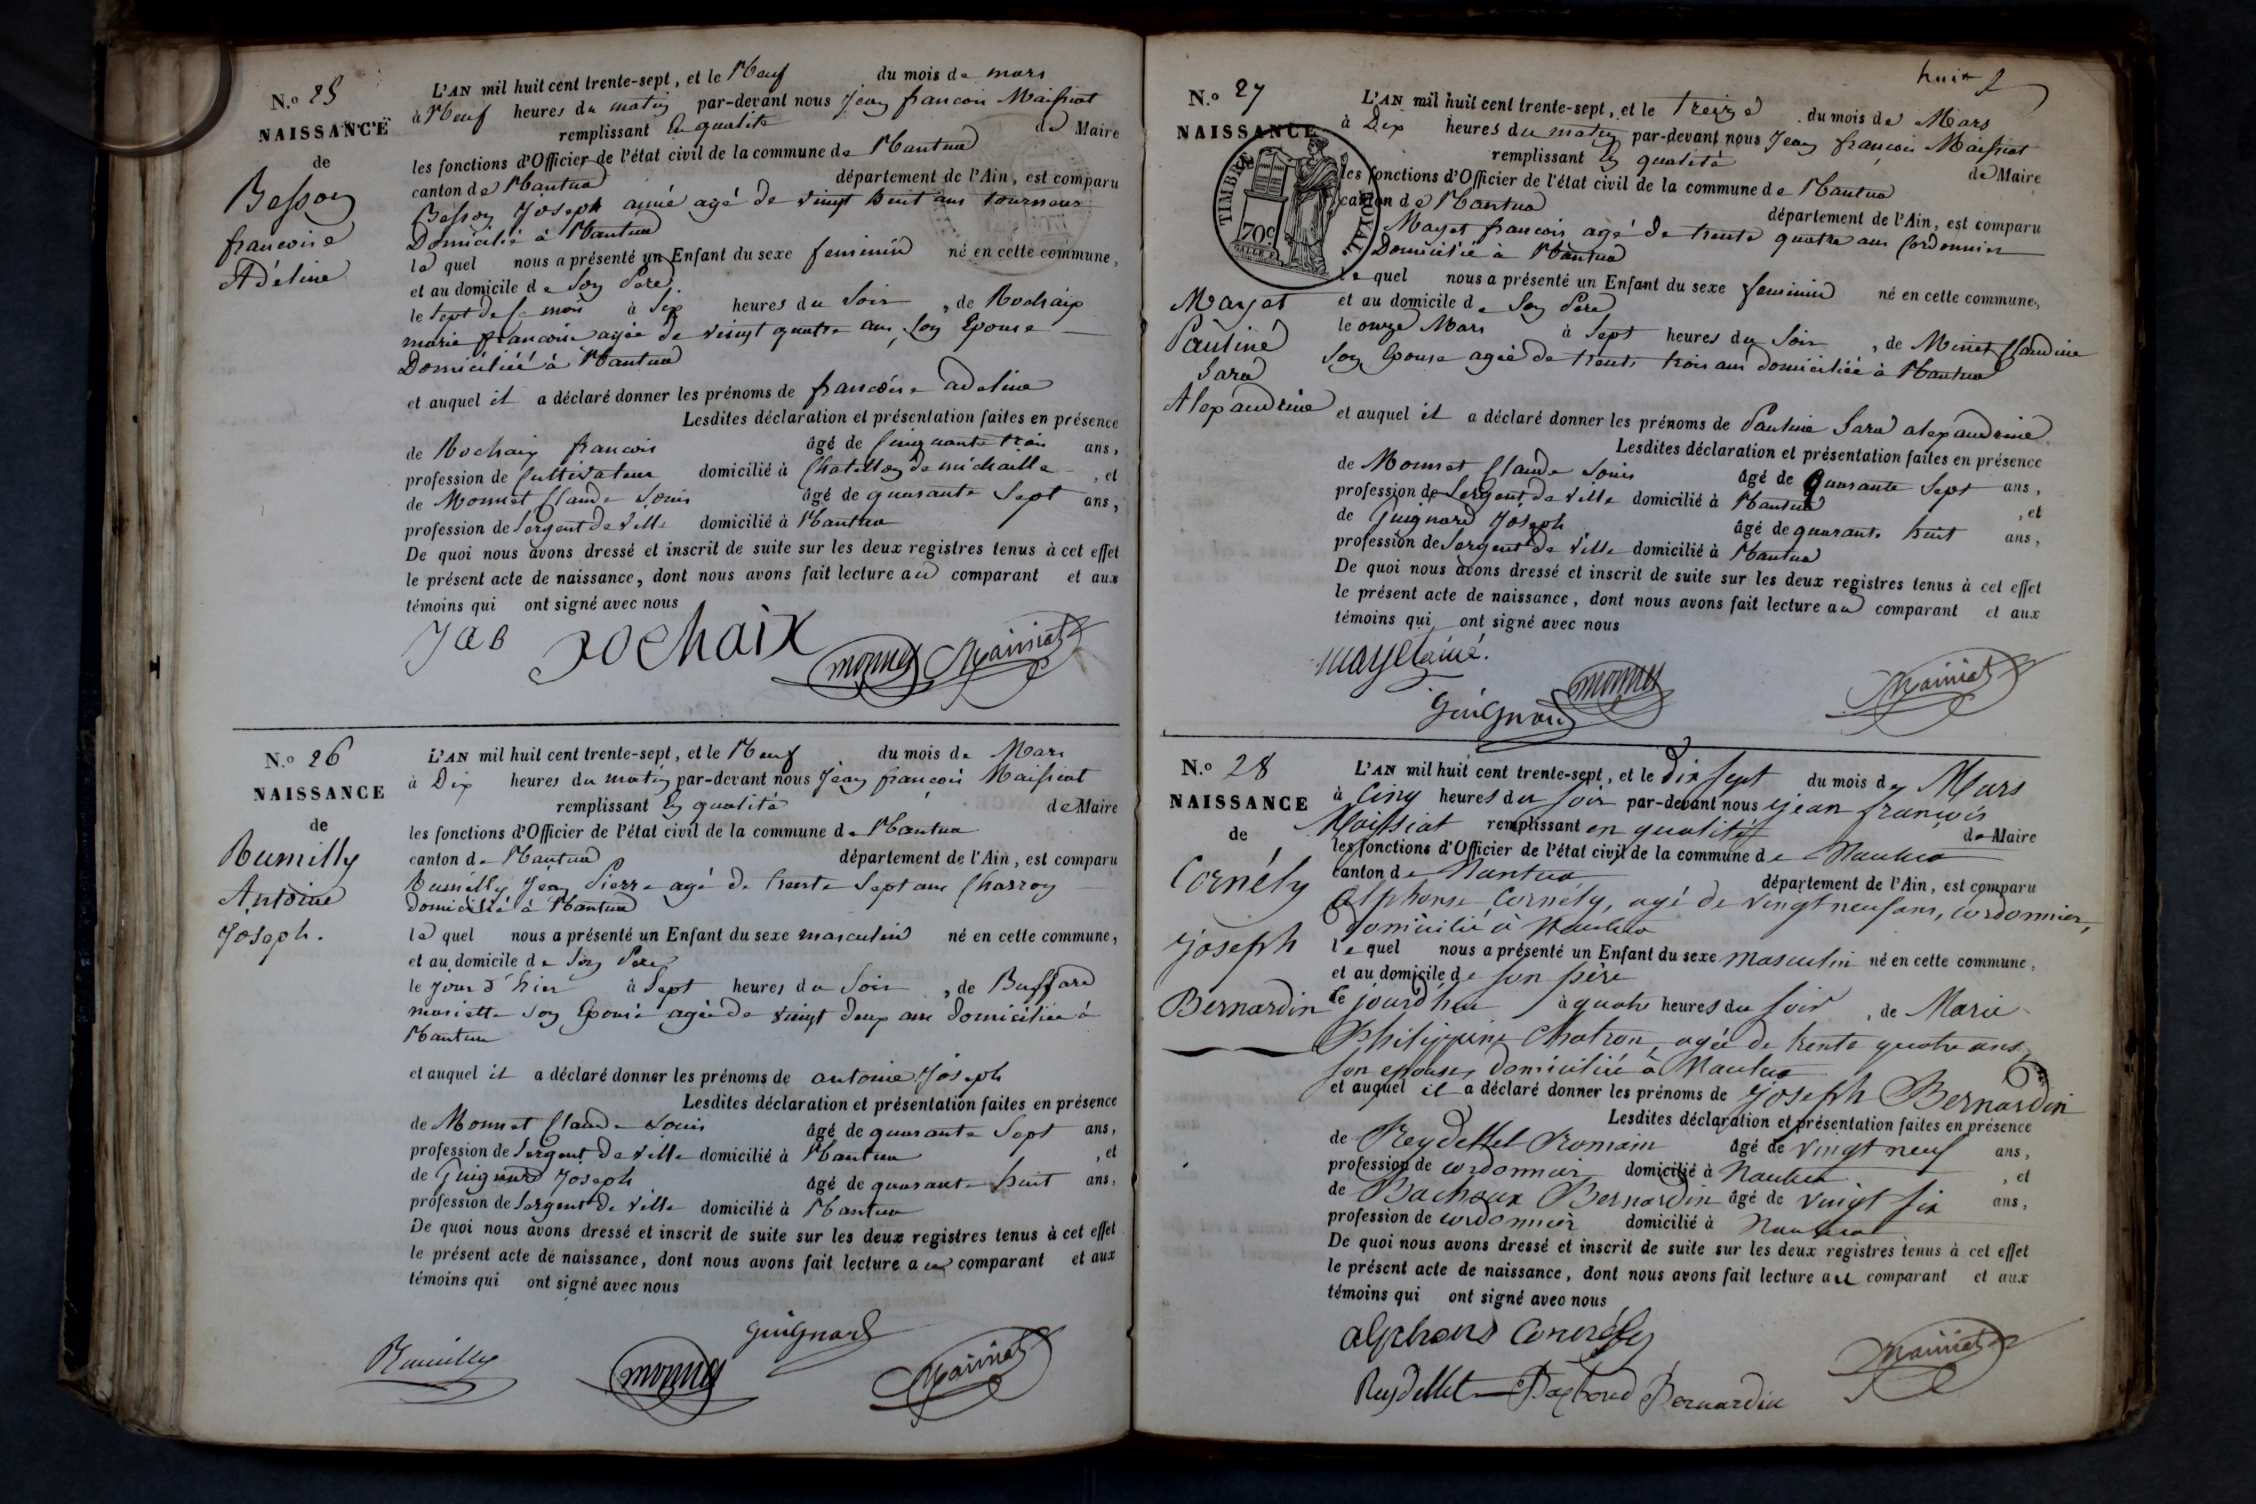 N.o 25
NAISSANCE
de
Besson
francoise
Adéline
L'AN mil huit cent trente-sept, et le Neuf du mois de mars
à Neuf heures du matin par-devant nous Jean francois Maissiat
remplissant En qualité de Maire
les fonctions d'Officier de l'état civil de la commune de Nantua
canton de Nantua département de l'Ain, est comparu
Besson Joseph ainé agé de vingt huit ans tourneur
Domicilié à Nantua
le quel nous a présenté un Enfant du sexe feminin né en cette commune,
et au domicile de Son Père
le Sept de ce mois à Six heures du Soir, de Rochaix
marie francoise agée de vingt quatre ans, Son Epouse
Domiciliée à Nantua
et auquel il a déclaré donner les prénoms de francoise adeline
Lesdites déclaration et présentation faites en présence
de Rochaix francois âgé de Cinquante trois ans,
profession de Cultivateur domicilié à Chatillon de michaille, et
de Monnet Claude Louis âgé de quarante Sept ans,
profession de Sergent de Ville domicilié à Nantua
De quoi nous avons dressé et inscrit de suite sur les deux registres tenus à cet effet
le présent acte de naissance, dont nous avons fait lecture au comparant et aux
témoins qui ont signé avec nous
JaB rochaix monnet Maissiat
N.o 26
NAISSANCE
de
Rumilly
Antoine
Joseph.
L'AN mil huit cent trente-sept, et le Neuf du mois de Mars
à Dix heures du matin par-devant nous Jean françois Maissiat
remplissant En qualité de Maire
les fonctions d'Officier de l'état civil de la commune de Nantua
canton de Nantua département de l'Ain, est comparu
Rumilly Jean Pierre agé de trente Sept ans Charron
domicilié à Nantua
le quel nous a présenté un Enfant du sexe masculin né en cette commune,
et au domicile de Son Père
le jour d'hier à Sept heures du Soir, de Buffard
mariette Son Epouse agée de vingt deux ans domiciliée à
Nantua
et auquel il a déclaré donner les prénoms de antoine Joseph
Lesdites déclaration et présentation faites en présence
de Monnet Claude Louis âgé de quarante Sept ans,
profession de Sergent de Ville domicilié à Nantua, et
de Guignard Joseph âgé de quarante huit ans,
profession de Sergent de Ville domicilié à Nantua
De quoi nous avons dressé et inscrit de suite sur les deux registres tenus à cet effet
le présent acte de naissance, dont nous avons fait lecture au comparant et aux
témoins qui ont signé avec nous
Guignard
Rumilly monnet Maissiat
huit
N.o 27
NAISSANCE
TIMBRE ROYAL
70c
Mayet
Pauline
Sara
Alexandrine
L'AN mil huit cent trente-sept, et le Treize du mois de Mars
à Dix heures du matin par-devant nous Jean francois Maissiat
remplissant En qualité de Maire
les fonctions d'Officier de l'état civil de la commune de Nantua
canton de Nantua département de l'Ain, est comparu
Mayet francois agé de trente quatre ans Cordonnier
Domicilié à Nantua
le quel nous a présenté un Enfant du sexe feminin né en cette commune,
et au domicile de Son Père
le onze Mars à Sept heures du Soir, de Minet Claudine
Son Epouse agée de trente trois ans domiciliée à Nantua
et auquel il a déclaré donner les prénoms de Pauline Sara alexandrine
Lesdites déclaration et présentation faites en présence
de Monnet Claude Louis âgé de Quarante Sept ans,
profession de Sergent de Ville domicilié à Nantua, et
de Guignard Joseph âgé de quarante huit ans,
profession de Sergent de Ville domicilié à Nantua
De quoi nous avons dressé et inscrit de suite sur les deux registres tenus à cet effet
le présent acte de naissance, dont nous avons fait lecture au comparant et aux
témoins qui ont signé avec nous
mayet ainé.
monnet Maissiat
Guignard
N.o 28
NAISSANCE
de
Cornély
Joseph
Bernardin
L'AN mil huit cent trente-sept, et le dix sept du mois de Mars
à cinq heures du soir par-devant nous jean françois
Maissiat remplissant en qualité de Maire
les fonctions d'Officier de l'état civil de la commune de Nantua
canton de Nantua département de l'Ain, est comparu
Alphonse Cornély, agé de vingt neuf ans, cordonnier,
domicilié à Nantua
le quel nous a présenté un Enfant du sexe masculin né en cette commune,
et au domicile de son père
le jourd'hui à quatre heures du soir, de Marie
Philippine Chatron, agée de trente quatre ans,
son epouse, domiciliée à Nantua
et auquel il a déclaré donner les prénoms de Joseph Bernardin
Lesdites déclaration et présentation faites en présence
de Reydellet Romain âgé de vingt neuf ans,
profession de cordonnier domicilié à Nantua, et
de Bachoux Bernardin âgé de vingt six ans,
profession de cordonnier domicilié à Nantua
De quoi nous avons dressé et inscrit de suite sur les deux registres tenus à cet effet
le présent acte de naissance, dont nous avons fait lecture au comparant et aux
témoins qui ont signé avec nous
alphons Cornély
Maissiat
Reydellet Bernardin